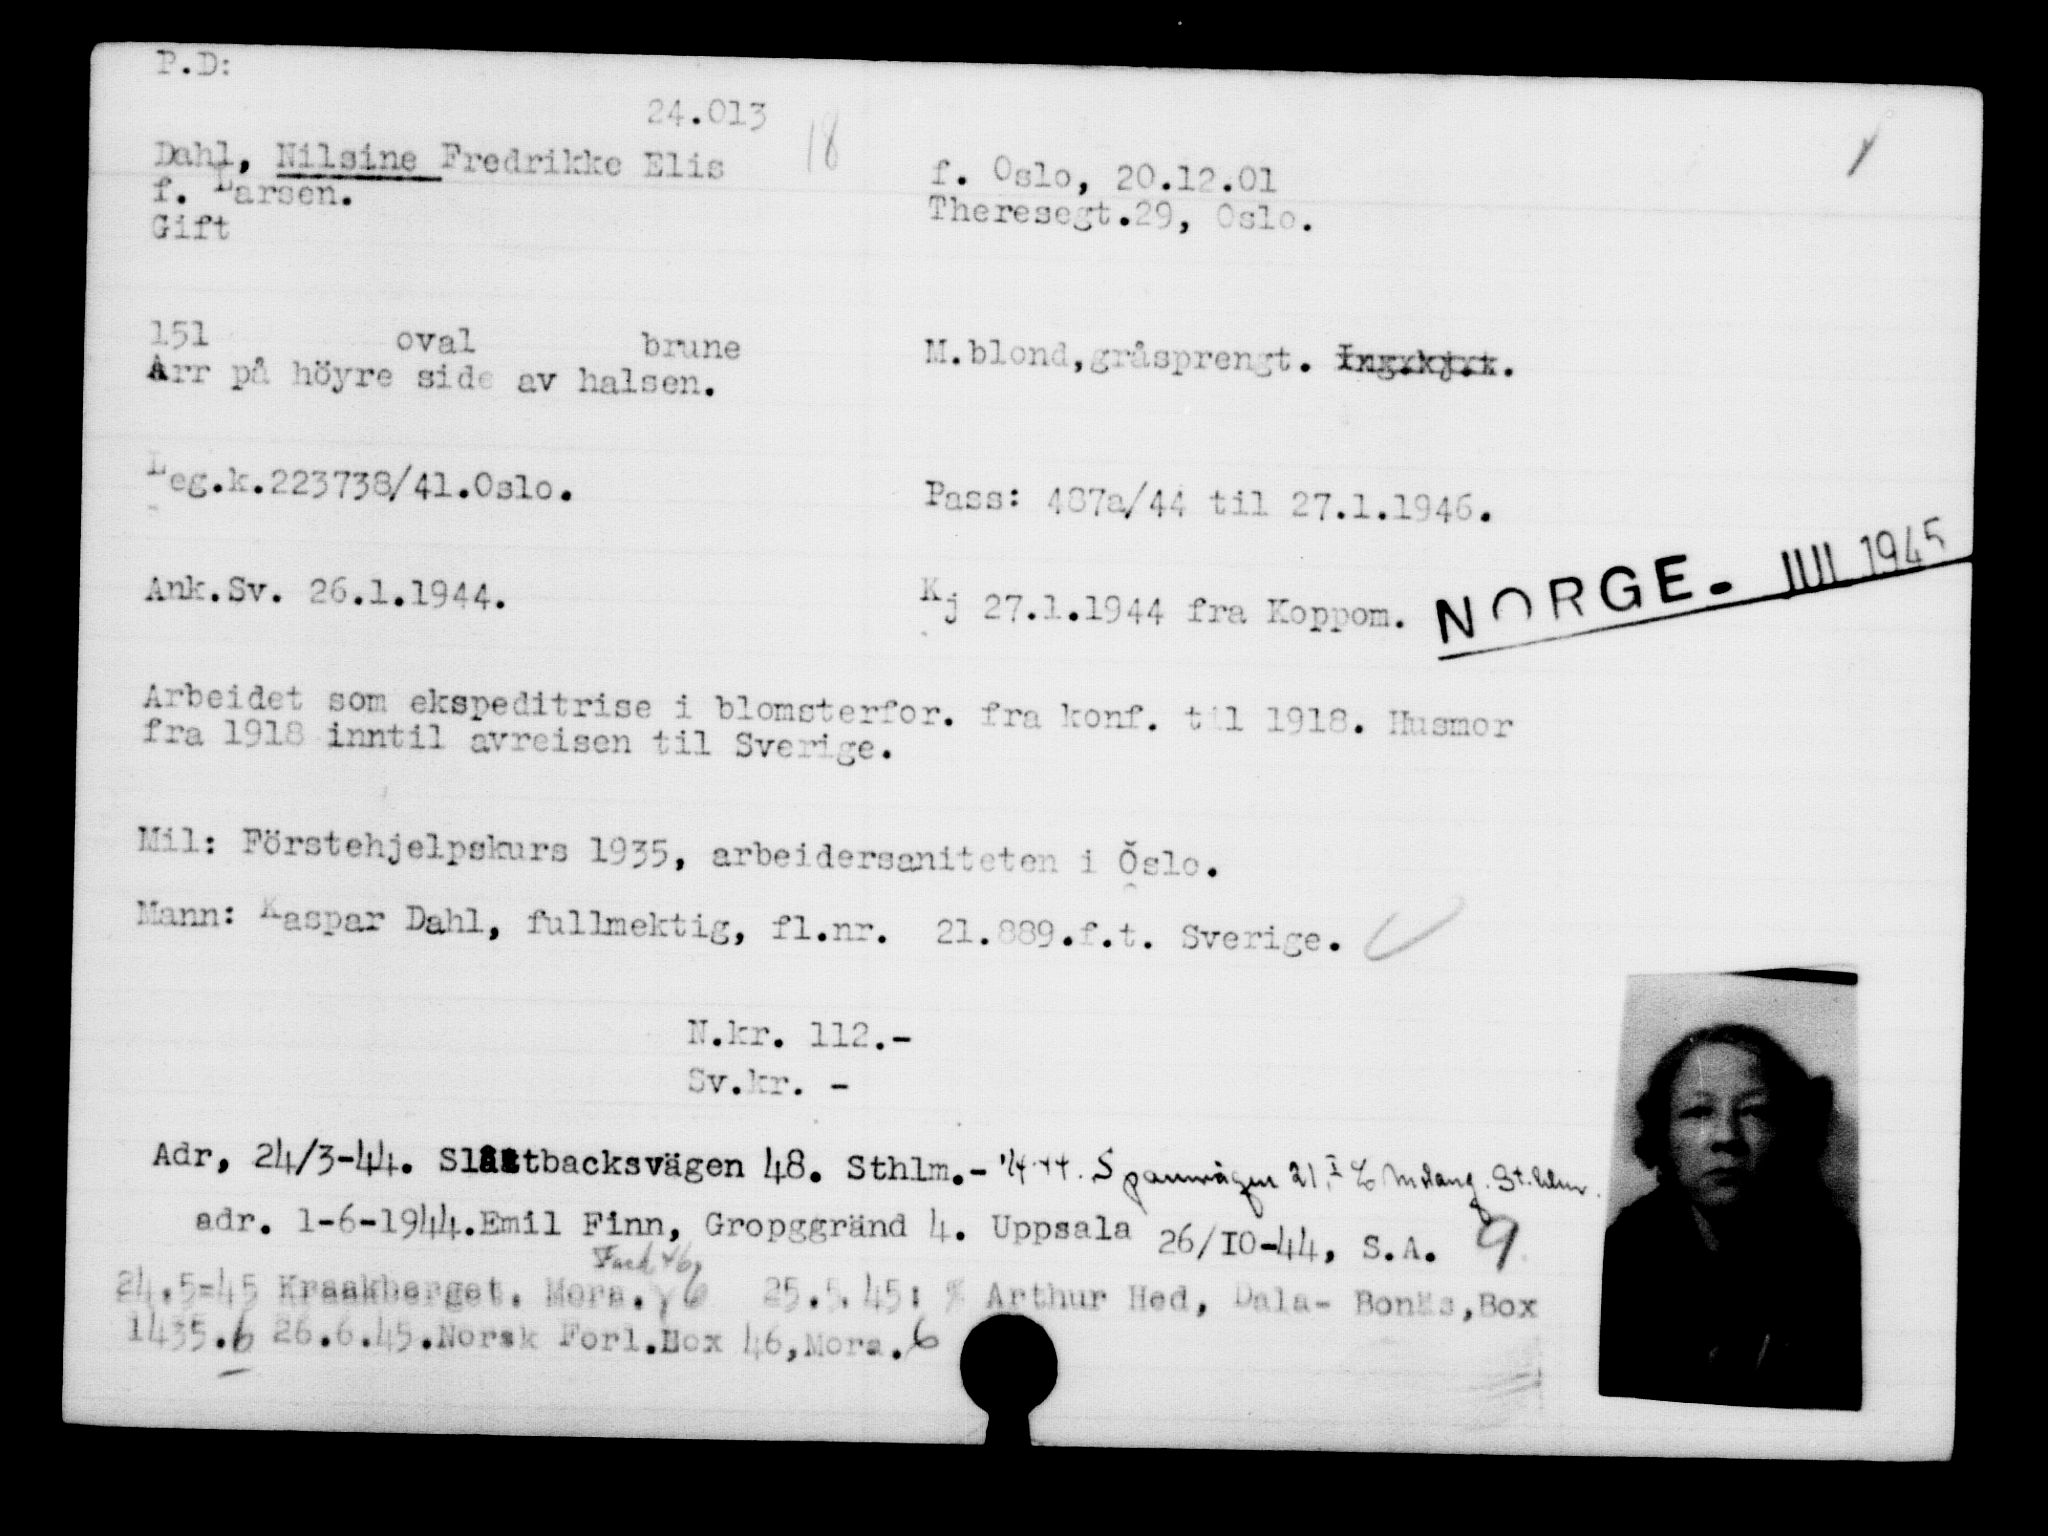 P.D:
24.013 18
Dahl, Nilsine Fredrikke Elis
f. Larsen.
Gift
f. Oslo, 20.12.01
Theresegt.29, Oslo.
151 oval brune
Arr på höyre side av halsen.
M.blond,gråsprengt.
Leg.k.223738/41.Oslo.
Pass: 487a/44 til 27.1.1946.
Ank.Sv. 26.1.1944.
Kj 27.1.1944 fra Koppom.
NORGE. JUL 1945
Arbeidet som ekspeditrise i blomsterfor. fra konf. til 1918. Husmor
fra 1918 inntil avreisen til Sverige.
Mil: Förstehjelpskurs 1935, arbeidersaniteten i Oslo.
Mann: Kaspar Dahl, fullmektig, fl.nr. 21.889.f.t. Sverige.
N.kr. 112.-
Sv.kr. -
Adr, 24/3-44. Slåttbacksvägen 48. Sthlm.- 21, I
adr. 1-6-1944.Emil Finn, Gropggränd 4. Uppsala 26/IO-44, S.A. 9
24.5-45 Kraakberget. Mora. 6 25.5.45: % Arthur Hed, Dala- Bonäs,Box
1435.6 26.6.45.Norsk Forl.Box 46,Mora.6